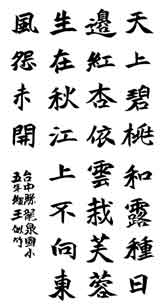 天上碧桃和露種日
邊紅杏依雲栽芙蓉
生在秋江上不向東
風怨未開
台中縣龍泉國小
五年 王